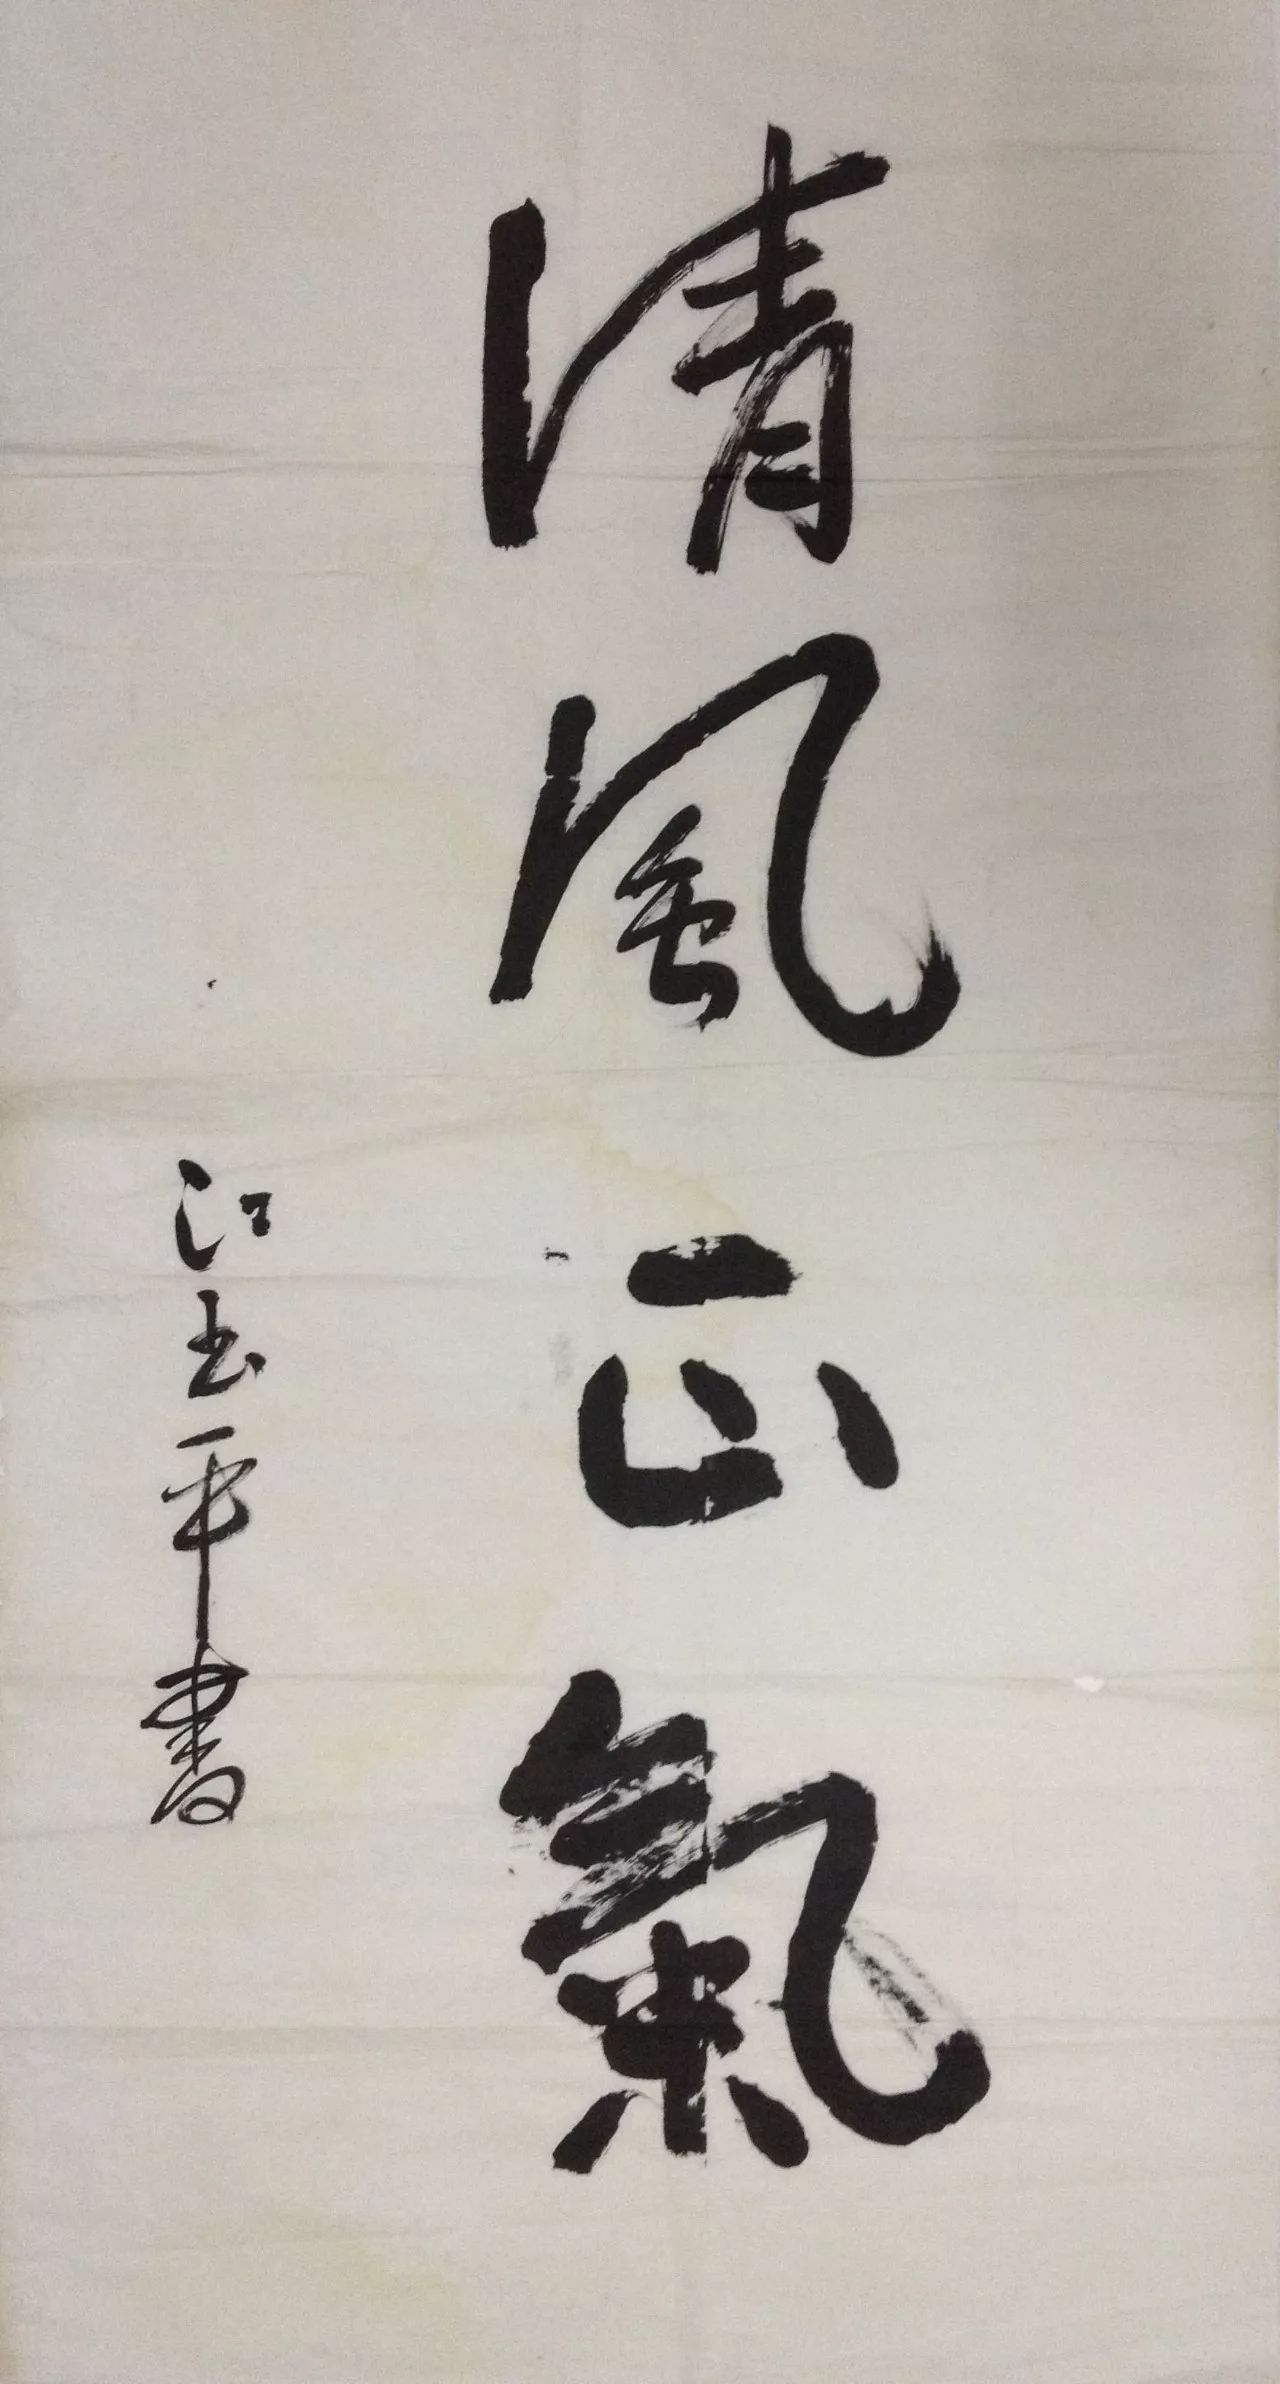 清風正氣
江玉平書